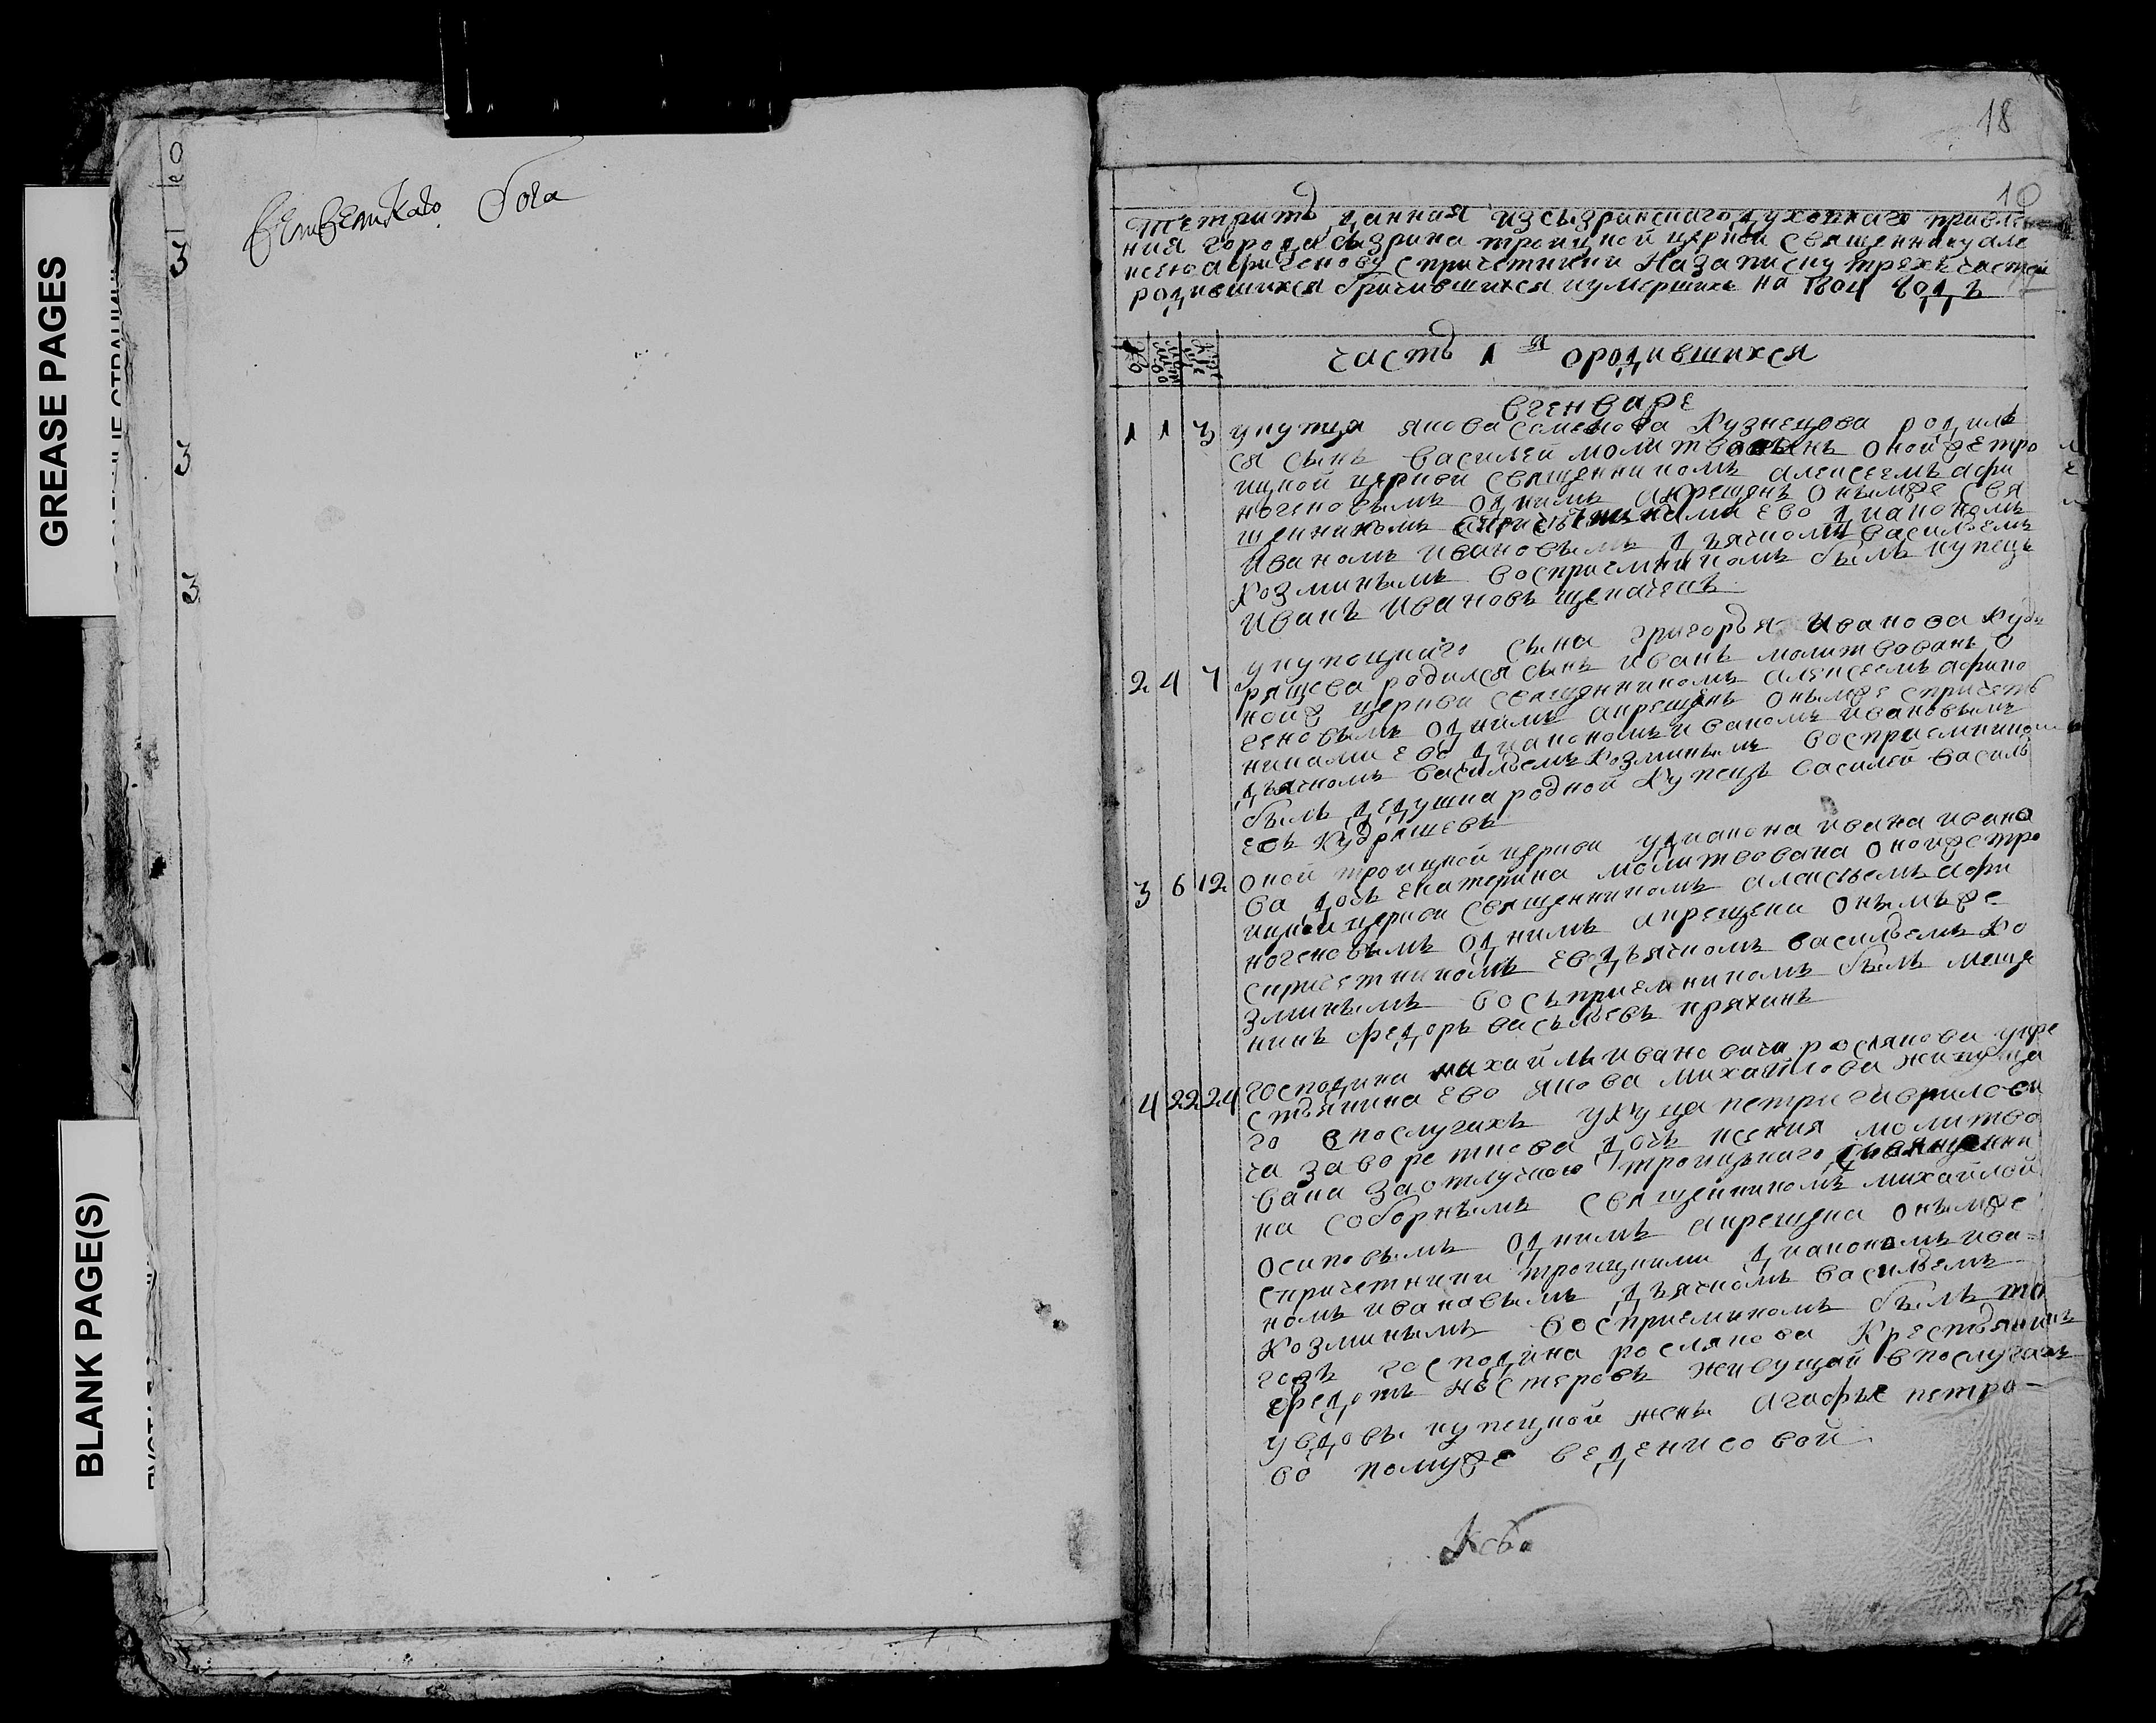 GREASE PAGES
BLANK PAGE(S)
18
тетрать данная изсызранскаго духовнаго правле
ния города сызрана троицкой церкви священнику але
ксею афиногенову спричетники назаписку трехъ частей
родившихся бричившихся иумершихъ на 1804 годъ
часть 1я ородившихся
вгенваре
1 1 3 укупца якова семенова Кузнецова родилъ
ся сынъ василей молитвованъ онойже тро
ицкой церкви священникомъ алексеемъ афи
ногеновымъ однимъ акрещенъ онымже свя
щенникомъ спричетниками ево диакономъ
Иваномъ Ивановымъ дьячкомъ васильемъ
Козминымъ воспрiемникомъ былъ купецъ
Иванъ Ивановъ
2 4 7 укупецкаго сына григорья Иванова Куд
ряшева родился сынъ Иванъ молитвованъ о
нойже церкви священникомъ алексеемъ афино
геновымъ однимъ акрещенъ онымже спричетъ
никами ево диакономъ иваномъ Ивановымъ
дьячкомъ васильемъ Козминымъ воспрiемникомъ
былъ дедушка родной Купецъ василей василь
евъ Кудряшевъ
3 6 12 оной троицкой церкви удиакона ивана ивано
ва дочь екатерина молитвована онойже тро
ицкой церкви священникомъ алексеемъ афи
ногеновымъ однимъ акрещена онымъже
спричетникомъ ево дьячкомъ васильемъ Ко
зминымъ восъприемникомъ былъ меща
нинъ федоръ васильевъ пряхинъ
4 22 24 господина михайлы ивановича рослякова укре
стьянина ево якова михайлова живуща
го впослугахъ укупца петра гаврилови
ча завороткова дочь ксения молитво
вана заотлучкою троицкаго священни
ка соборнымъ священникомъ михайлой
осиповымъ однимъ акрещена онымже
спричетники троицкими диакономъ ива=
номъ ивановымъ дьячкомъ васильемъ
Козминымъ воспрiемникомъ былъ то
гожъ господина рослякова Крестьянинъ
федотъ нестеровъ живущей впослугахъ
увдовы купецкой жены агафье петро-
во помуже веденисовой